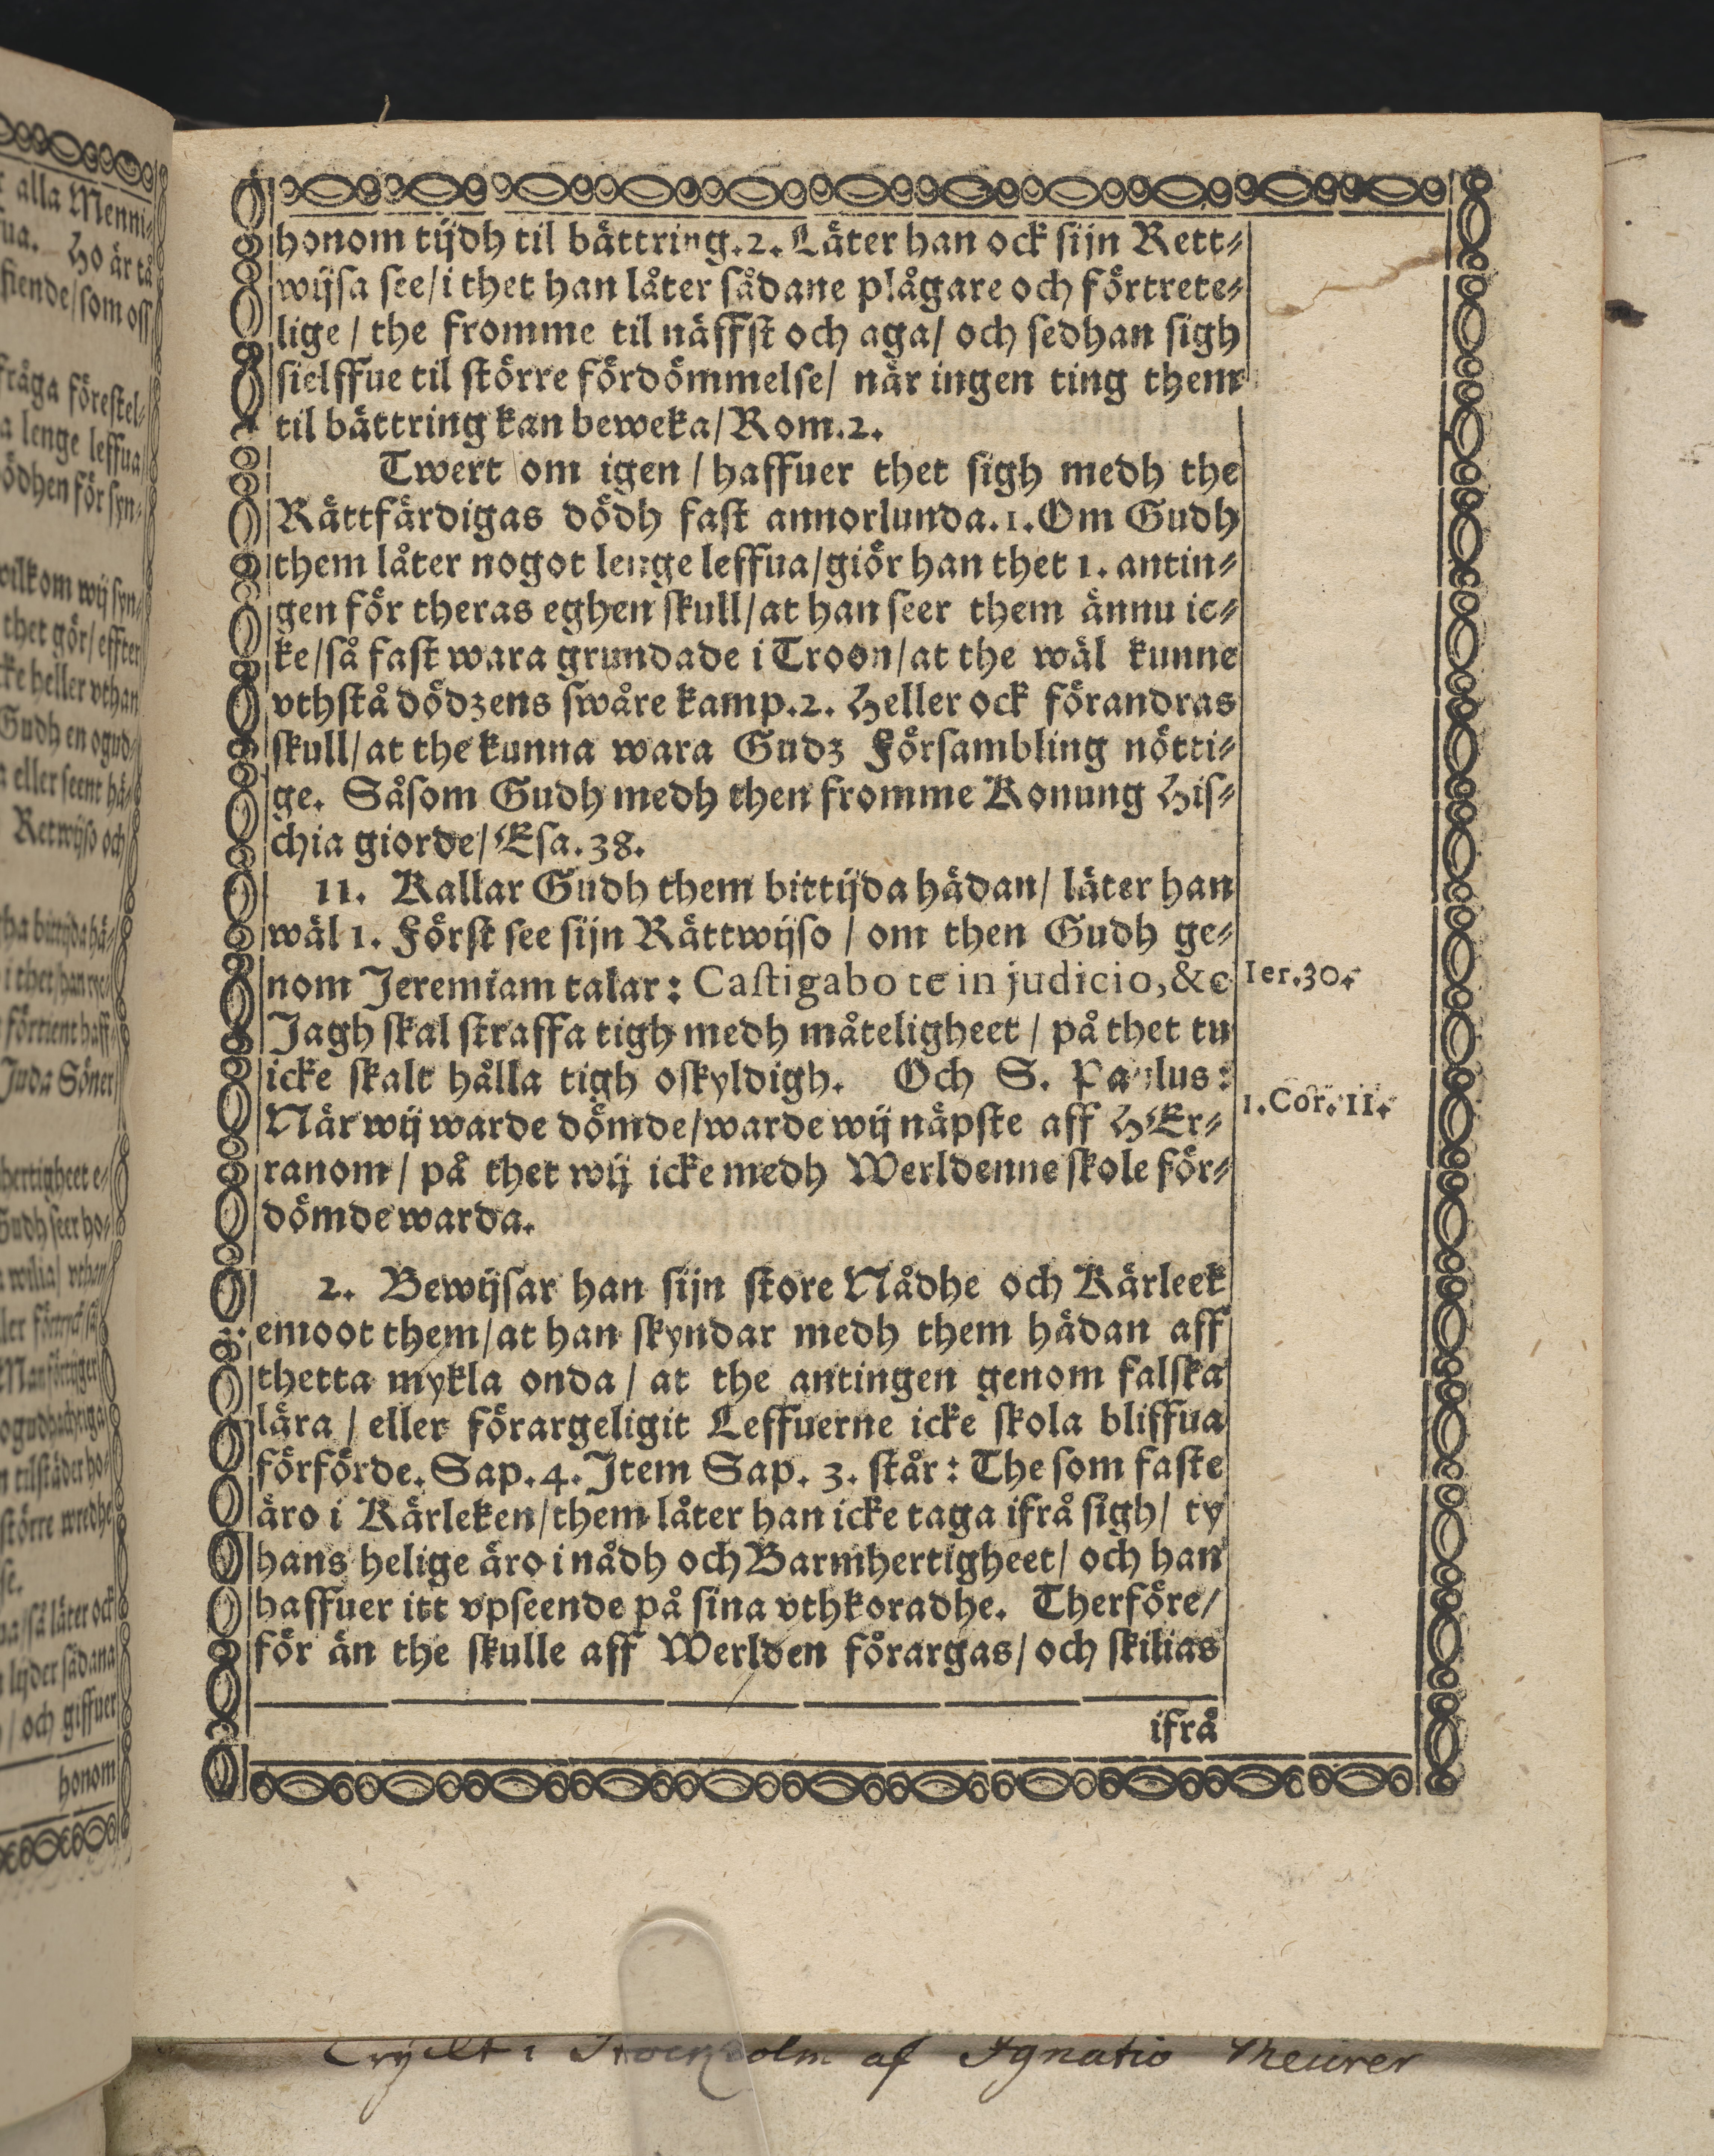 honom tijdh til bättring. 2. Läter han ock sijn Rett-
wijsa see/ i thet han låter sådane plågare och förtrete-
lige / the fromme til näffst och aga/ och sedhan sigh
sielffue til större fördömmelse/ när ingen ting them
til bättring kan beweka/ Rom. 2.
Twert om igen / haffuer thet sigh medh the
Rättfärdigas dödh fast annorlunda. 1. Om Gudh
them låter nogot lenge leffua/ giör han thet 1. antin-
gen för theras eghen skull/ at han seer them ännu ic-
ke/ så fast wara grundade i Troon/ at the wäl kunne
vthstå dödzens swåre kamp. 2. Heller ock förandras
skull/ at the kunna wara Gudz Försambling nötti-
ge. Såsom Gudh medh then fromme Konung His-
chia giorde/ Esa. 38.
11. Kallar Gudh them bittijda hädan/ läter han
wäl 1. Först see sijn Rättwijso / om then Gudh ge-
nom Jeremiam talar: Castigabo te in judicio, &c
Ier. 30.
Jagh skal straffa tigh medh måteligheet / på thet tu
icke skalt hålla tigh oskyldigh. Och S. Paulus:
1. Cor. 11.
När wij warde dömde/ warde wij näpste aff HEr-
ranom / på thet wij icke medh Werldenne skole för-
dömde warda.
2. Bewijsar han sijn store Nådhe och Kärleek
emoot them/ at han skyndar medh them hädan aff
thetta mykla onda / at the antingen genom falska
lära / eller förargeligit Leffuerne icke skola bliffua
förförde. Sap. 4. Item Sap. 3. står: The som faste
äro i Kärleken/ them låter han icke taga ifrå sigh/ ty
hans helige äro i nådh och Barmhertigheet/ och han
haffuer itt vpseende på sina vthkoradhe. Therföre/
för än the skulle aff Werlden förargas/ och skilias
ifrå
alla Menni-
Ho är tå
fiende/ som oss
fråga förestel-
lenge leffua
för syn-
om wij syn-
thet gör/ effter
heller vthan
Gudh en ogud-
eller seent hä-
Retwijso och
bittijda hä-
förtient haff-
Juda Söner
Gudh seer ho-
tilstäder ho-
större wredhe
så läter ock
lyder sådana
/ och giffuer
honom
Tryckt i Stockholm af Ignatio Meurer